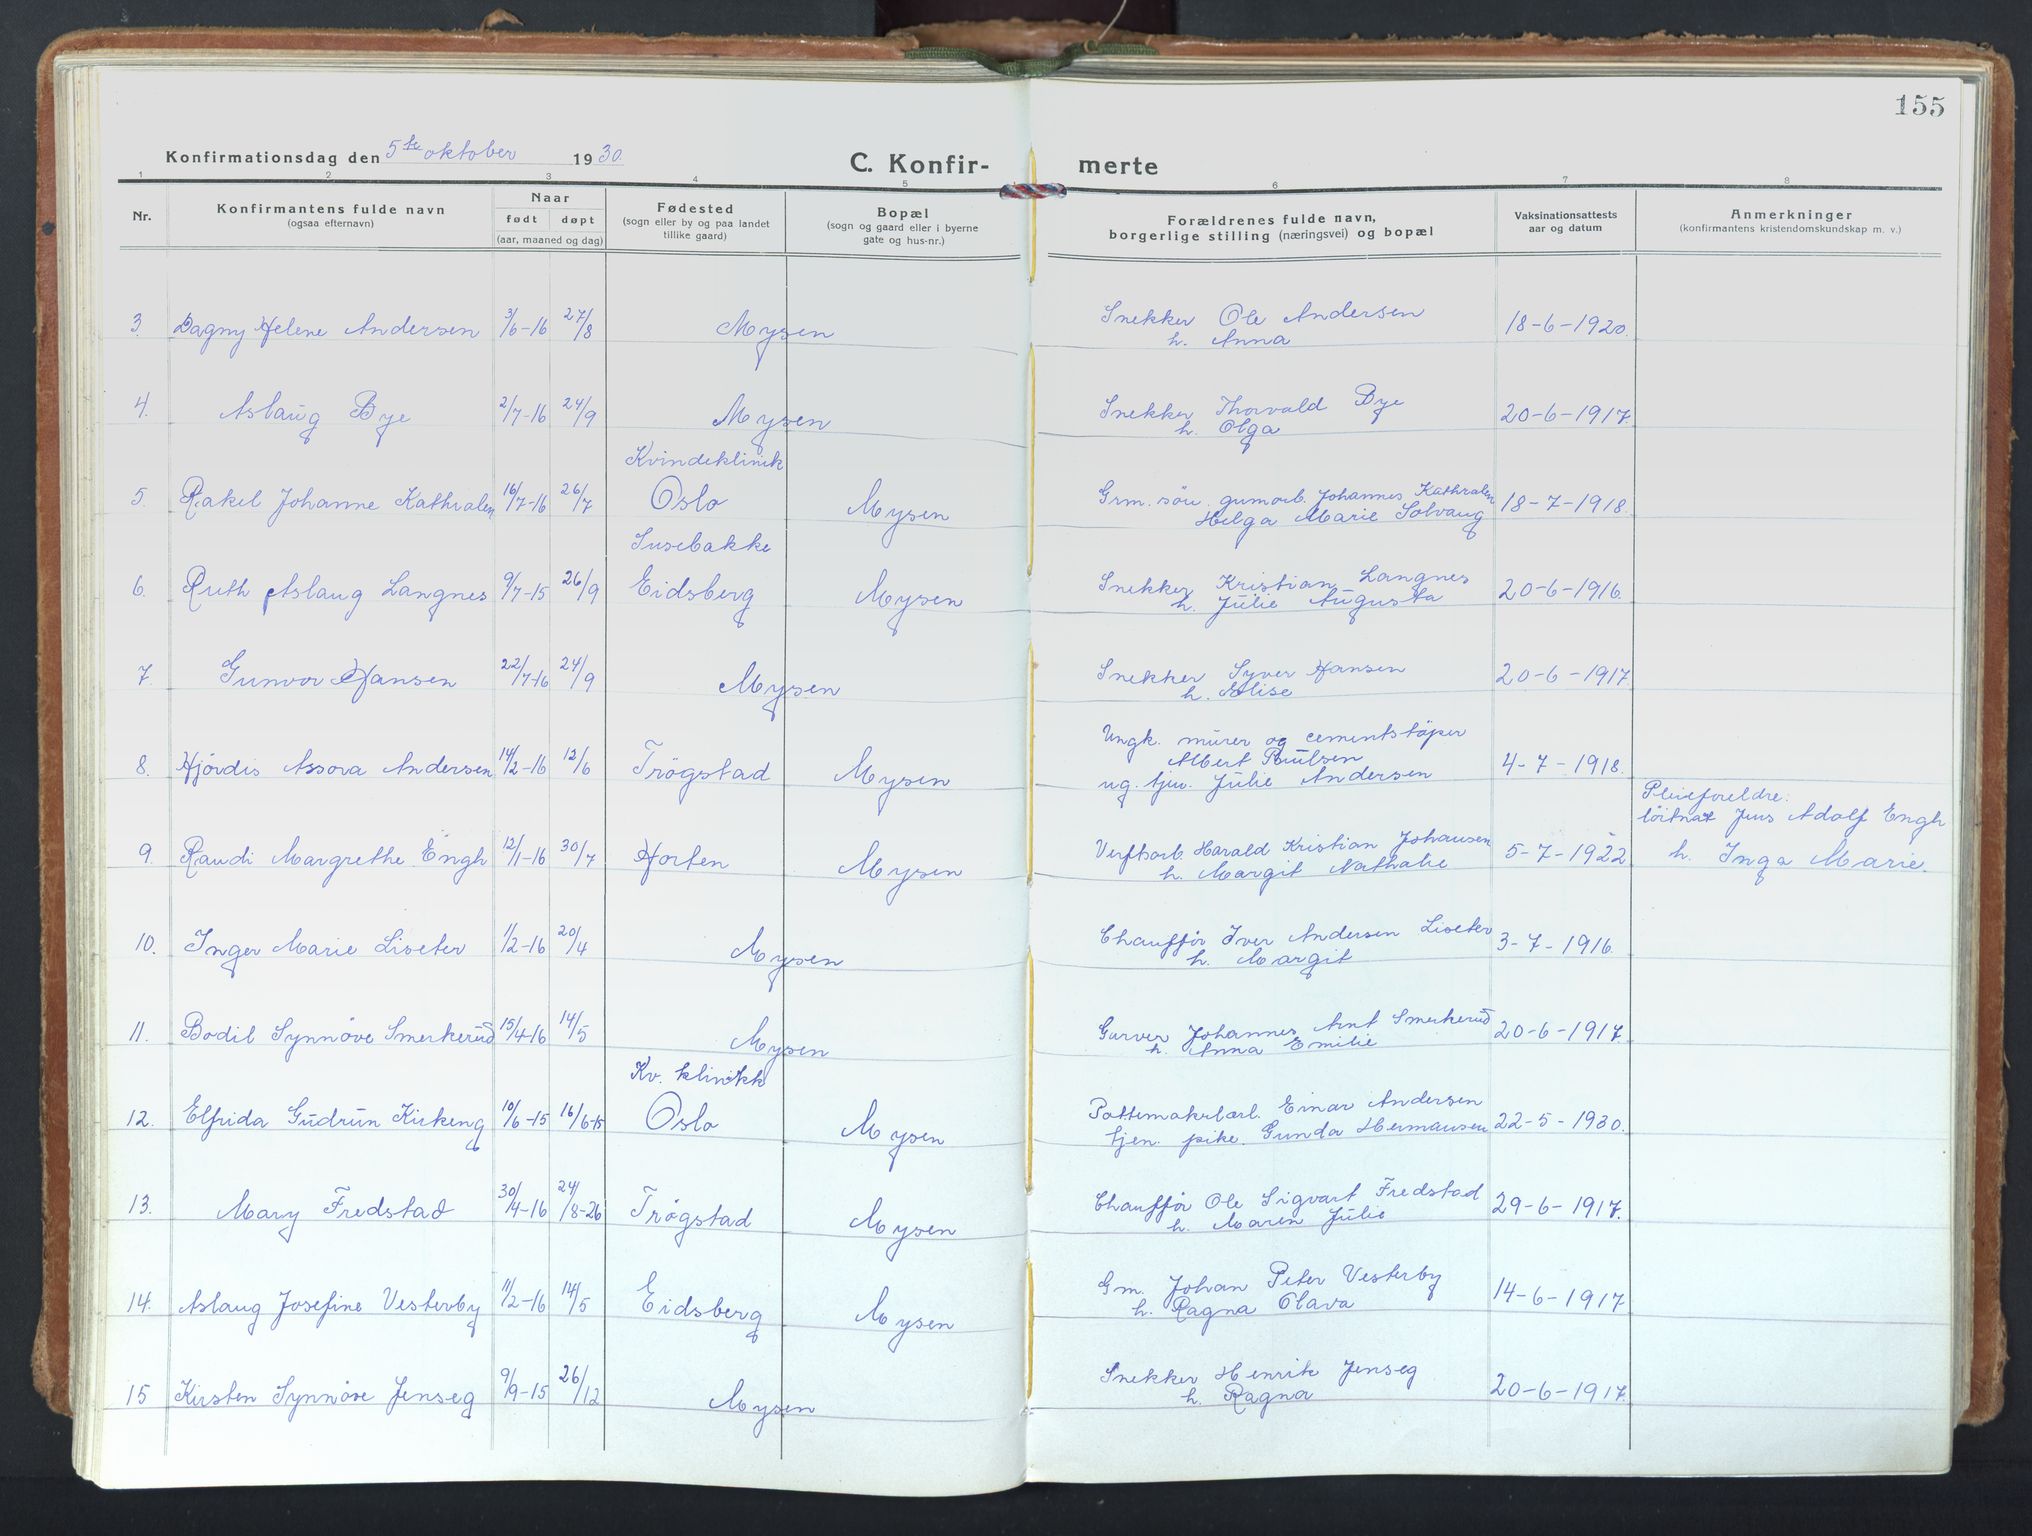 155
Konfirmationsdag den 5te oktober 1930.
C. Konfir- merte
1 2 3 4 5 6 7 8
Nr.
Konfirmantens fulde navn
(ogsaa efternavn)
Naar
født døpt
(aar, maaned og dag)
Fødested
(sogn eller by og paa landet
tillike gaard)
Bopæl
(sogn og gaard eller i byerne
gate og hus-nr.)
Forældrenes fulde navn,
borgerlige stilling (næringsvei) og bopæl
Vaksinationsattests
aar og datum
Anmerkninger
(konfirmantens kristendomskundskap m. v.)
3 Dagny Helene Andersen 3/6-16 27/8 Mysen Snekker Ole Andersen 18-6-1920.
h. Anna
4. Aslaug Bye 2/7-16 24/9 Mysen Snekker Thorvald Bye 20-6-1917.
h. Olga
Kvindeklinik
5. Rakel Johanne Kathralen 16/7-16 26/7 Oslo Mysen Grm. søn. gumarb. Johannes Kathralen 18-7-1918.
Helga Marie Solvang
Susebakke
6. Ruth Aslaug Langnes 9/7-15 26/9 Eidsberg Mysen Snekker Kristian Langnes 20-6-1916.
h. Julie Augusta
7. Gunvor Hansen 22/7-16 24/9 Mysen Snekker Syver Hansen 20-6-1917.
h. Elise
Ungk. murer og cementstøper
8. Hjørdis Assora Andersen 14/2-16 12/6 Trøgstad Mysen Albert Paulsen 4-7-1918.
ug. tjen. Julie Andersen
Pleieforeldre:
løitnat Jens Adolf Engh
9. Randi Margrethe Engh 12/1-16 30/7 Horten Mysen Verftsarb. Harald Kristian Johansen 5-7-1922 h. Inga Marie.
h. Margit Nathalie
10. Inger Marie Liseter 1/2-16 20/4 Mysen Chauffør Iver Andersen Liseter 3-7-1916.
h. Margit
11. Bodil Synnøve Smerkerud 15/4-16 14/5 Mysen Garver Johannes Arnt Smerkerud 20-6-1917.
h. Anna Emilie
Kv. klinikk
12. Elfrida Gudrun Kirkeng 10/6-15 16/6-15 Oslo Mysen Pottemakerarb. Einar Andersen 22-5-1930.
tjen. pike. Gunda Hermansen
13. Mary Fredstad 30/4-16 24/8-26 Trøgstad Mysen Chauffør Ole Sigvart Fredstad 29-6-1917.
h. Maren Julie
14. Aslaug Josefine Vesterby 11/2-16 14/5 Eidsberg Mysen Gm. Johan Peter Vesterby 14-6-1917
h. Ragna Olava
15 Kirsten Synnøve Jenseg 9/9-15 26/12 Mysen Snekker Henrik Jenseg 20-6-1917.
h. Ragna